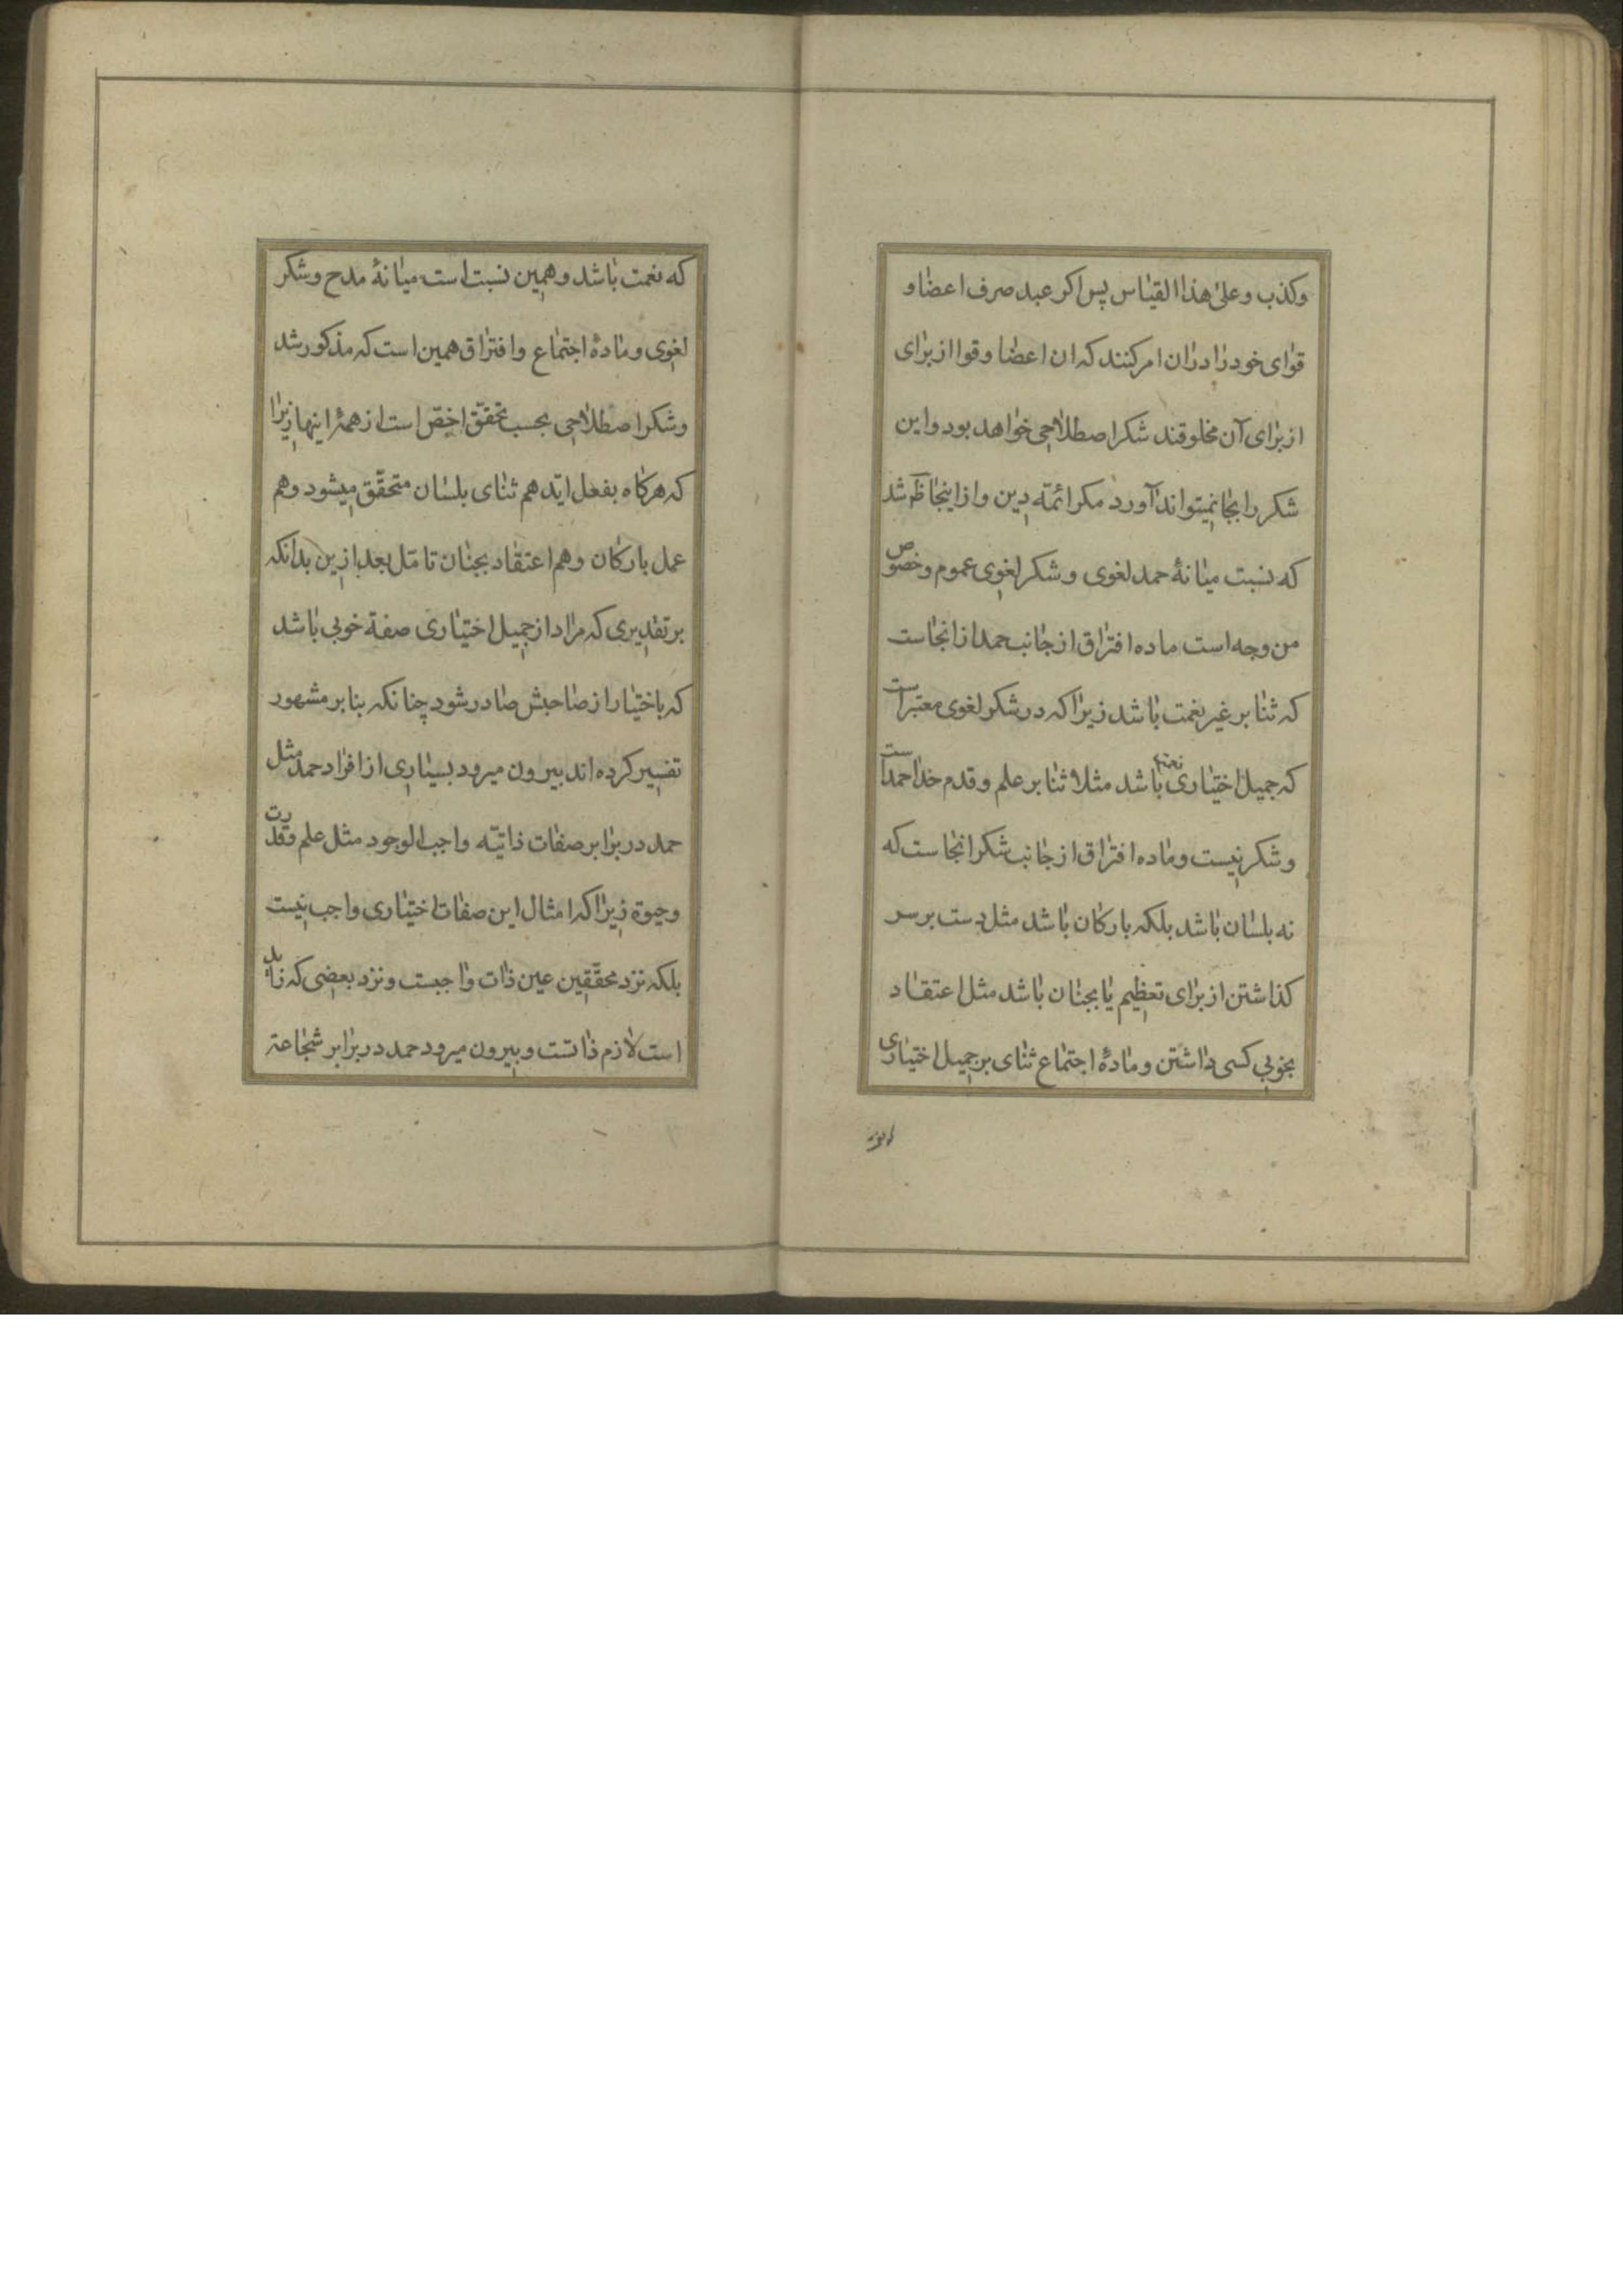 وکذب و علیٰ هذا القیاس پس اکر عبد صرف اعضا و
قوای خود را دران امر کنند که ان اعضا و قوا از برای
از برای آن مخلوقند شکر اصطلاحی خواهد بود و این
شکر را بجا نمیتواند آورد مکر ائمّه دین و از اینجا ظَرَ شد
که نسبت میانهٔ حمد لغوی و شکر لغوی عموم و خصوص
من وجه است ماده افتراق از جانب حمد از انجاست
که ثنا بر غیر نعمت باشد زیرا که در شکر لغوی معتبر است
که جمیل اختیاری نعمة باشد مثلا ثنا بر علم و قدم خدا حمد است
و شکر نیست و ماده افتراق از جانب شکر انجاست که
نه بلسان باشد بلکه بارکان باشد مثل دست بر سر
کذاشتن از برای تعظیم یا بجنان باشد مثل اعتقاد
بخوبی کسی داشتن و مادهٔ اجتماع ثنای بر جمیل اختیاری
که نعمت باشد و همین نسبت است میانهٔ مدح و شکر
لغوی و مادهٔ اجتماع و افتراق همین است که مذکور شد
و شکر اصطلاحی بحسب تحقّق اخصّ است از همهٔ اینها زیرا
که هرکاه بفعل اید هم ثنای بلسان متحقّق میشود و هم
عمل بارکان و هم اعتقاد بجنان تامّل بعد ازین بدانکه
بر تقدیری که مراد از جمیل اختیاری صفة خوبی باشد
که باختیار از صاحبش صادر شود چنانکه بنا بر مشهور
تفسیر کرده اند بیرون میرود بسیاری از افراد حمد مثل
حمد در برابر صفات ذاتیّه واجب الوجود مثل علم و قدرت
و حیوة زیرا که امثال این صفات اختیاری واجب نیست
بلکه نزد محقّقین عین ذات واجبست و نزد بعضی که زاید
است لازم ذاتست و بیرون میرود حمد در برابر شجاعة